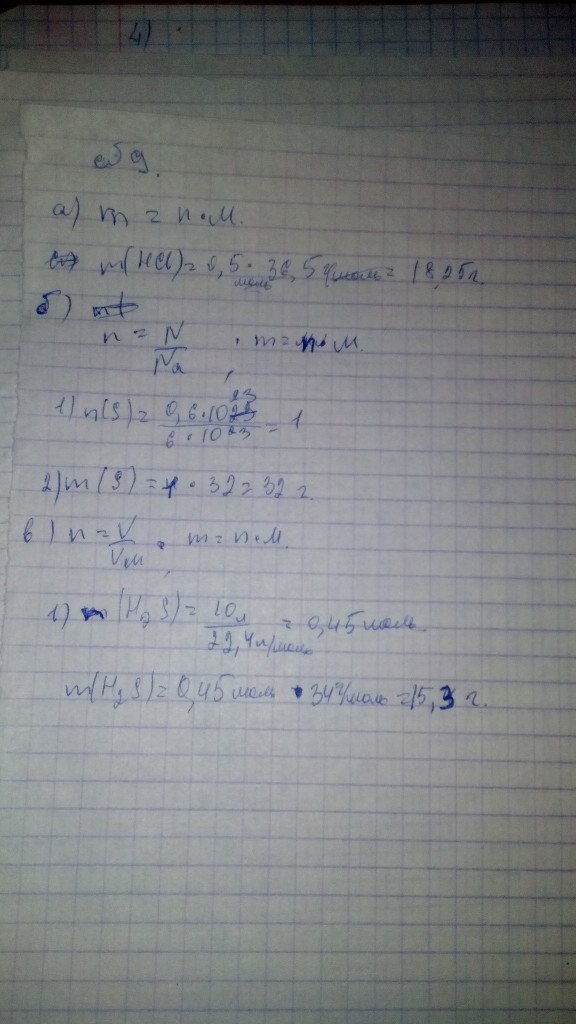 4)
а) m = n · M.
m(HCl) = 0,5 моль · 36,5 г/моль = 18,25 г.
б)
n = N/Na , m = n · M.
1) n(S) = 0,6·10²³/6·10²³ = 1
2) m(S) = 1 · 32 = 32 г.
в) n = V/Vм , m = n · M.
1) n(H₂S) = 10л/22,4л/моль = 0,45 моль
m(H₂S) = 0,45 моль · 34 г/моль = 15,3 г.